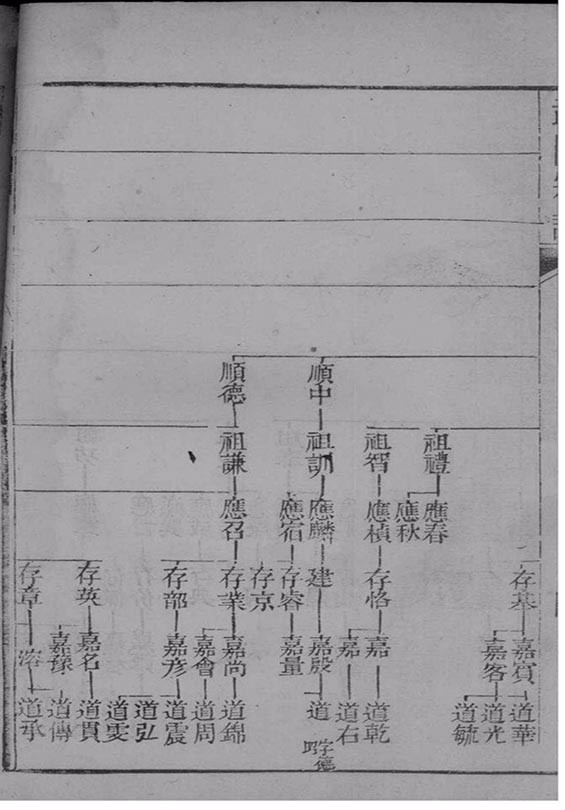 順中
順德
祖禮
祖智
祖訓
祖謙
應春
應秋
應楨
應麟
應宿
應召
存基
存恪
建
存睿
存京
存業
存部
存英
存章
嘉賓
嘉客
嘉
嘉
嘉殷
嘉量
嘉尚
嘉會
嘉彥
嘉名
嘉豫
溶
道華
道光
道毓
道乾
道右
道
道錦
道周
道震
道弘
道雯
道貫
道傳
道承